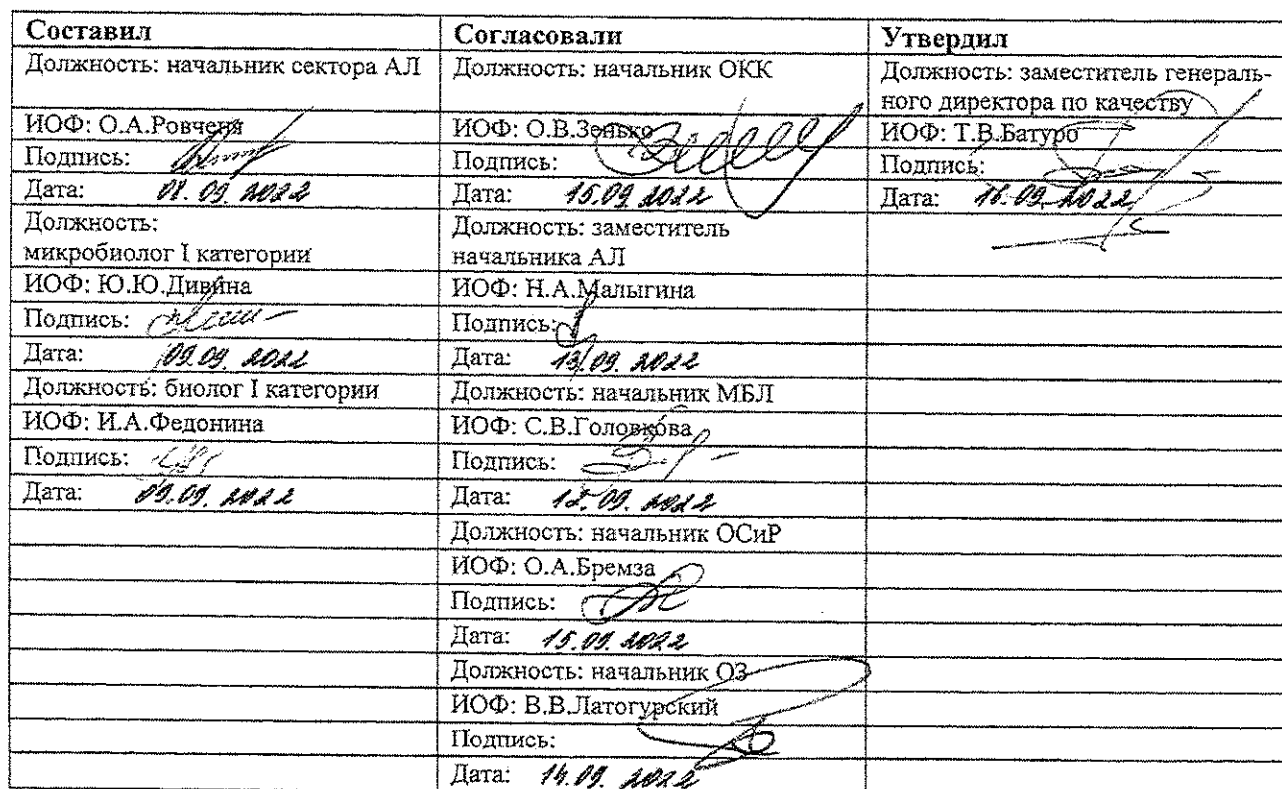 Составил Согласовали Утвердил
Должность: начальник сектора АЛ Должность: начальник ОКК Должность: заместитель генераль-
ного директора по качеству
ИОФ: О.А.Ровченя ИОФ: О.В.Зенько ИОФ: Т.В.Батуро
Подпись: Подпись: Подпись:
Дата: 08.09.2022 Дата: 15.09.2022 Дата: 16.09.2022
Должность: Должность: заместитель
микробиолог I категории начальника АЛ
ИОФ: Ю.Ю.Дивина ИОФ: Н.А.Малыгина
Подпись: Подпись:
Дата: 09.09.2022 Дата: 13.09.2022
Должность: биолог I категории Должность: начальник МБЛ
ИОФ: И.А.Федонина ИОФ: С.В.Головкова
Подпись: Подпись:
Дата: 09.09.2022 Дата: 12.09.2022
Должность: начальник ОСиР
ИОФ: О.А.Бремза
Подпись:
Дата: 15.09.2022
Должность: начальник ОЗ
ИОФ: В.В.Латогурский
Подпись:
Дата: 14.09.2022